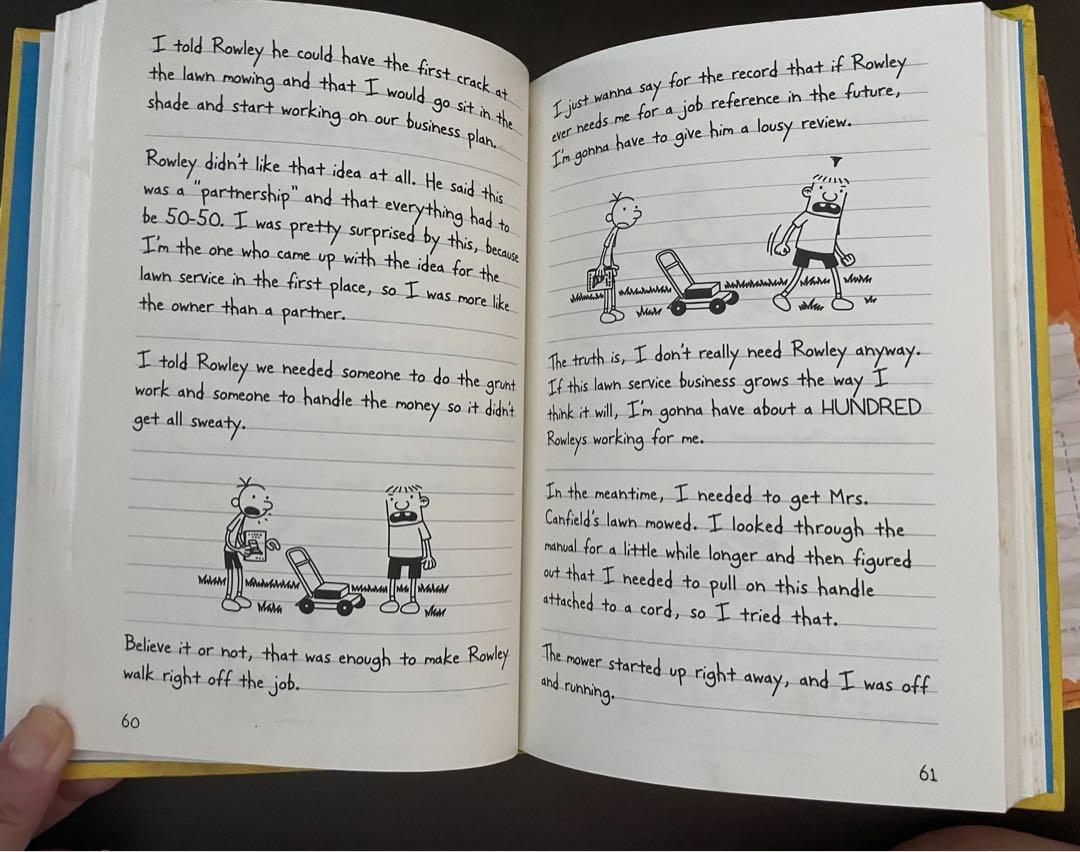 I told Rowley he could have the first crack at
the lawn mowing and that I would go sit in the
shade and start working on our business plan.
Rowley didn't like that idea at all. He said this
was a "partnership" and that everything had to
be 50-50. I was pretty surprised by this, because
I'm the one who came up with the idea for the
lawn service in the first place, so I was more like
the owner than a partner.
I told Rowley we needed someone to do the grunt
work and someone to handle the money so it didn't
get all sweaty.
Believe it or not, that was enough to make Rowley
walk right off the job.
60
I just wanna say for the record that if Rowley
ever needs me for a job reference in the future,
I'm gonna have to give him a lousy review.
The truth is, I don't really need Rowley anyway.
If this lawn service business grows the way I
think it will, I'm gonna have about a HUNDRED
Rowleys working for me.
In the meantime, I needed to get Mrs.
Canfield's lawn mowed. I looked through the
manual for a little while longer and then figured
out that I needed to pull on this handle
attached to a cord, so I tried that.
The mower started up right away, and I was off
and running.
61